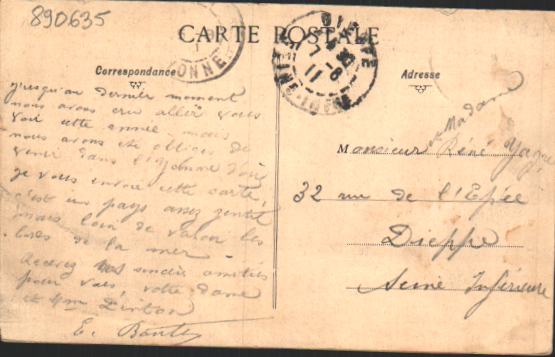 890.635
CARTE POSTALE
Correspondance
Adresse
DIEPPE
7 - 8
11
ONNE
jusqu'au dernier moment
nous avons cru aller vous
voir cette année mais
nous avons été obligés de
venir dans l'Yonne d'où
je vous envoie cette carte,
c'est un pays assez gentil
mais loin de valoir les
bords de la mer
Recevez nos sincères amitiés
pour vous, votre dame
et Mme
E.
et Madame
Monsieur Réné
32 rue de l'Epée
Dieppe
Seine Inférieure